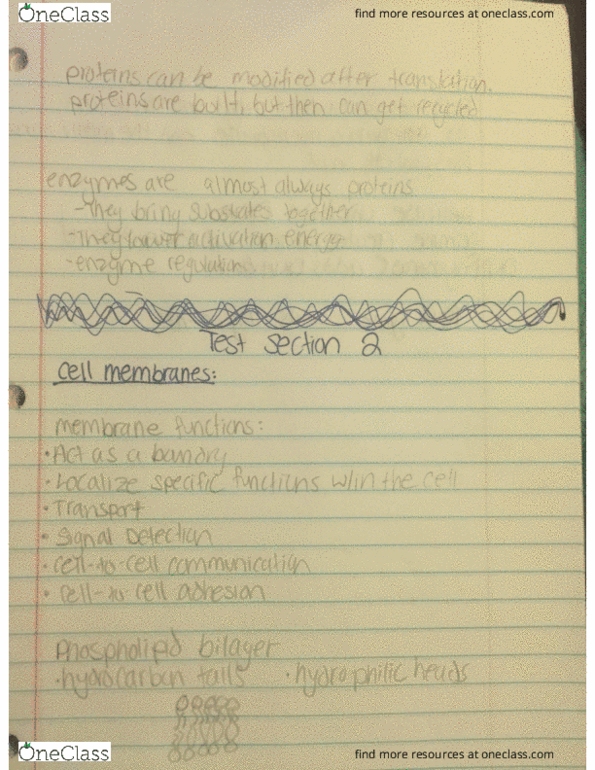 OneClass
find more resources at oneclass.com
proteins can be modified after translation.
proteins are built, but then can get recycled
enzymes are almost always proteins
-They bring substrates together
-They lower activation energy
-enzyme regulation
Test section 2
cell membranes:
membrane functions:
• Act as a bandry
• Localize specific functions w/in the cell
• Transport
• Signal Detection
• cell-to-cell communication
• cell-to cell adhesion
Phospholipid bilager
• hydrocarbon tails • hydrophilic heads
OneClass
find more resources at oneclass.com